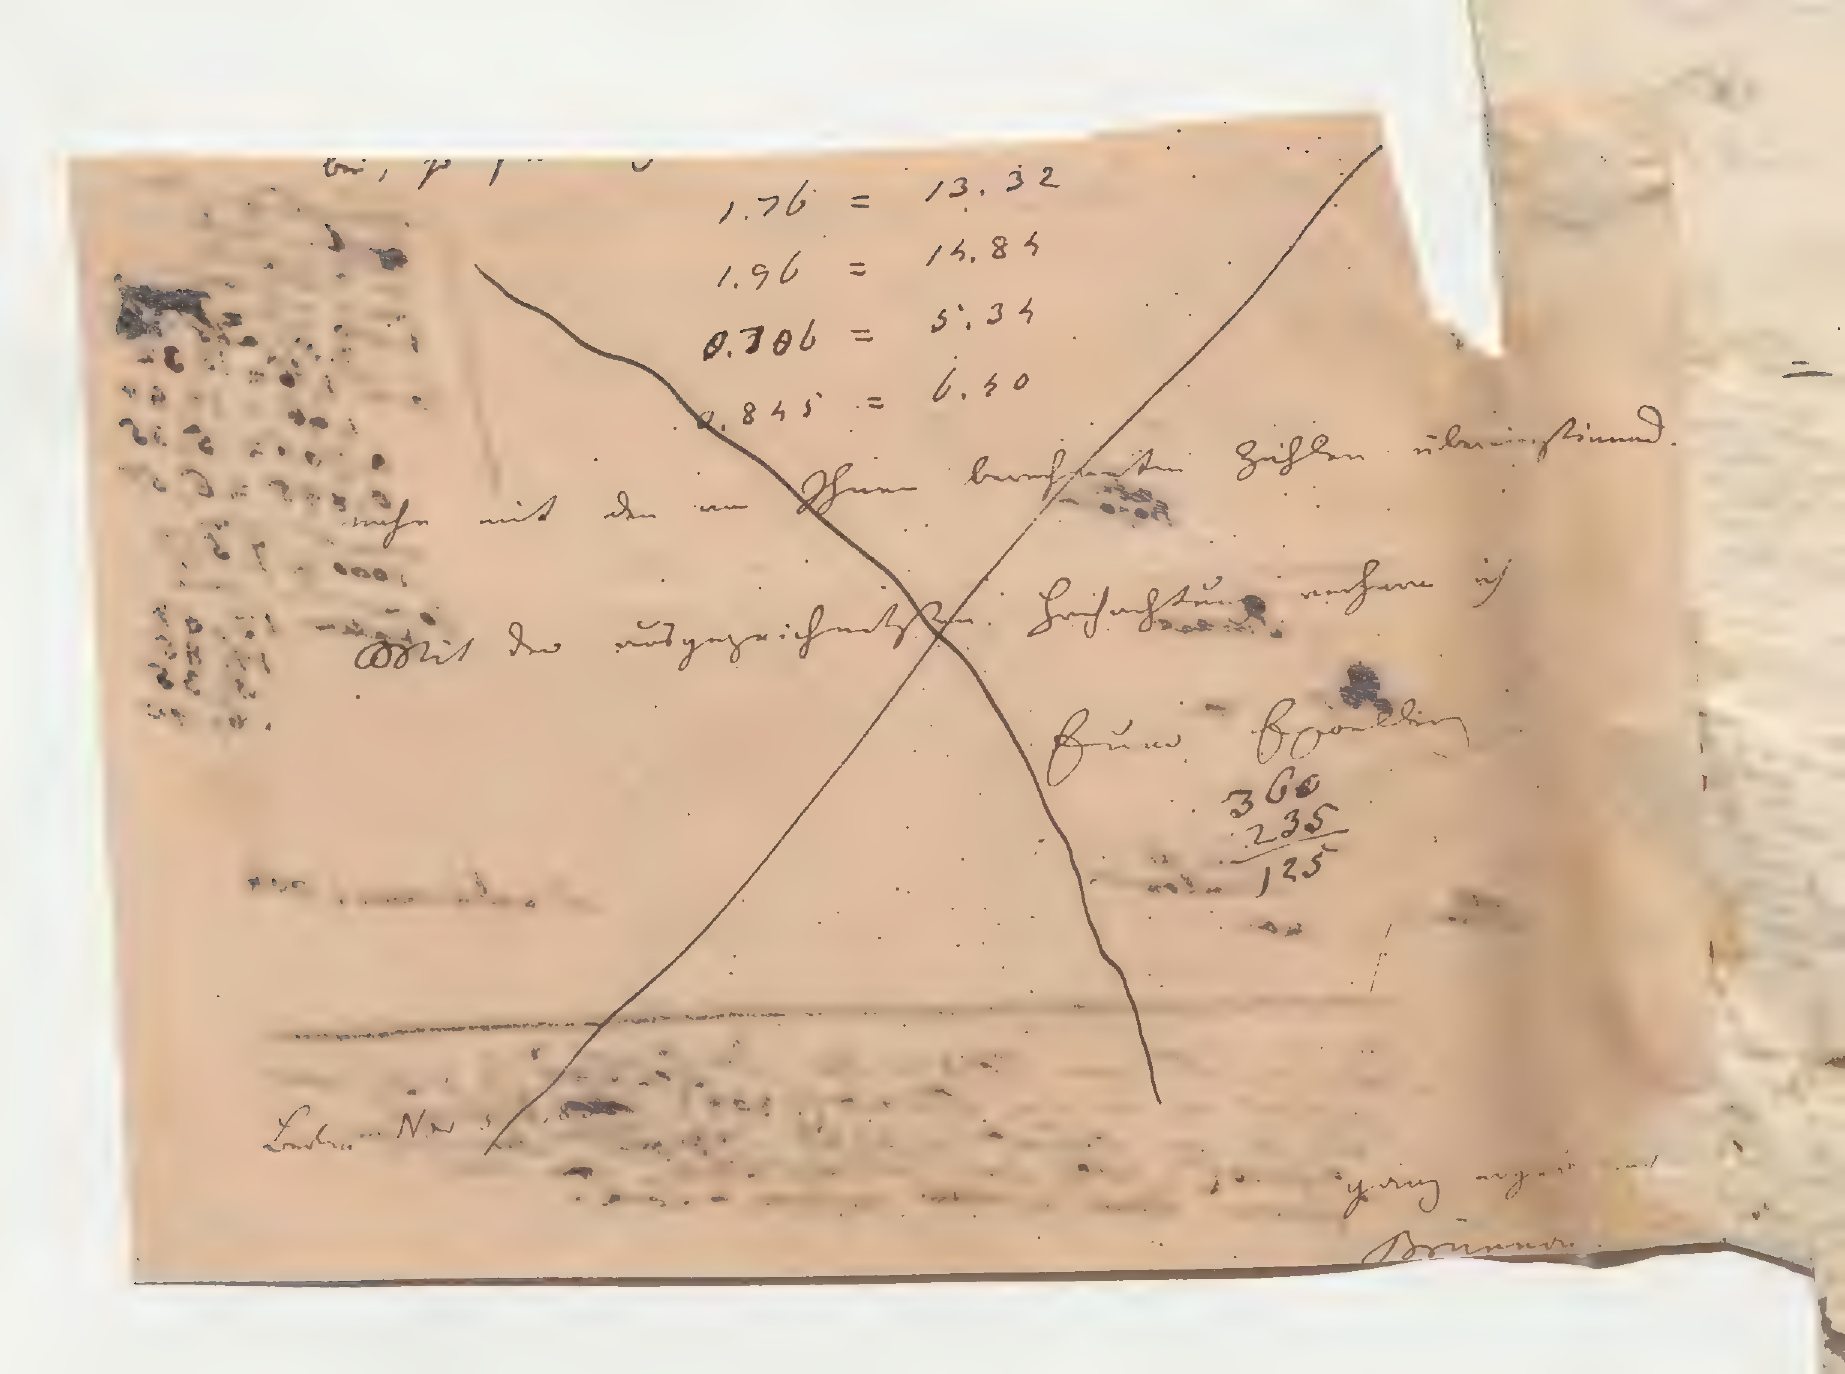 1.76 = 13.32
1.96 = 14.84
0.706 = 5.34
0.845 = 6.40
nahe mit den von Ihnen berechneten Zahlen übereinstimmend.
Mit der ausgezeichnetsten Hochachtung verharre ich
Eurer
360
235
125
Nov
ganz ergebenst
Brunner